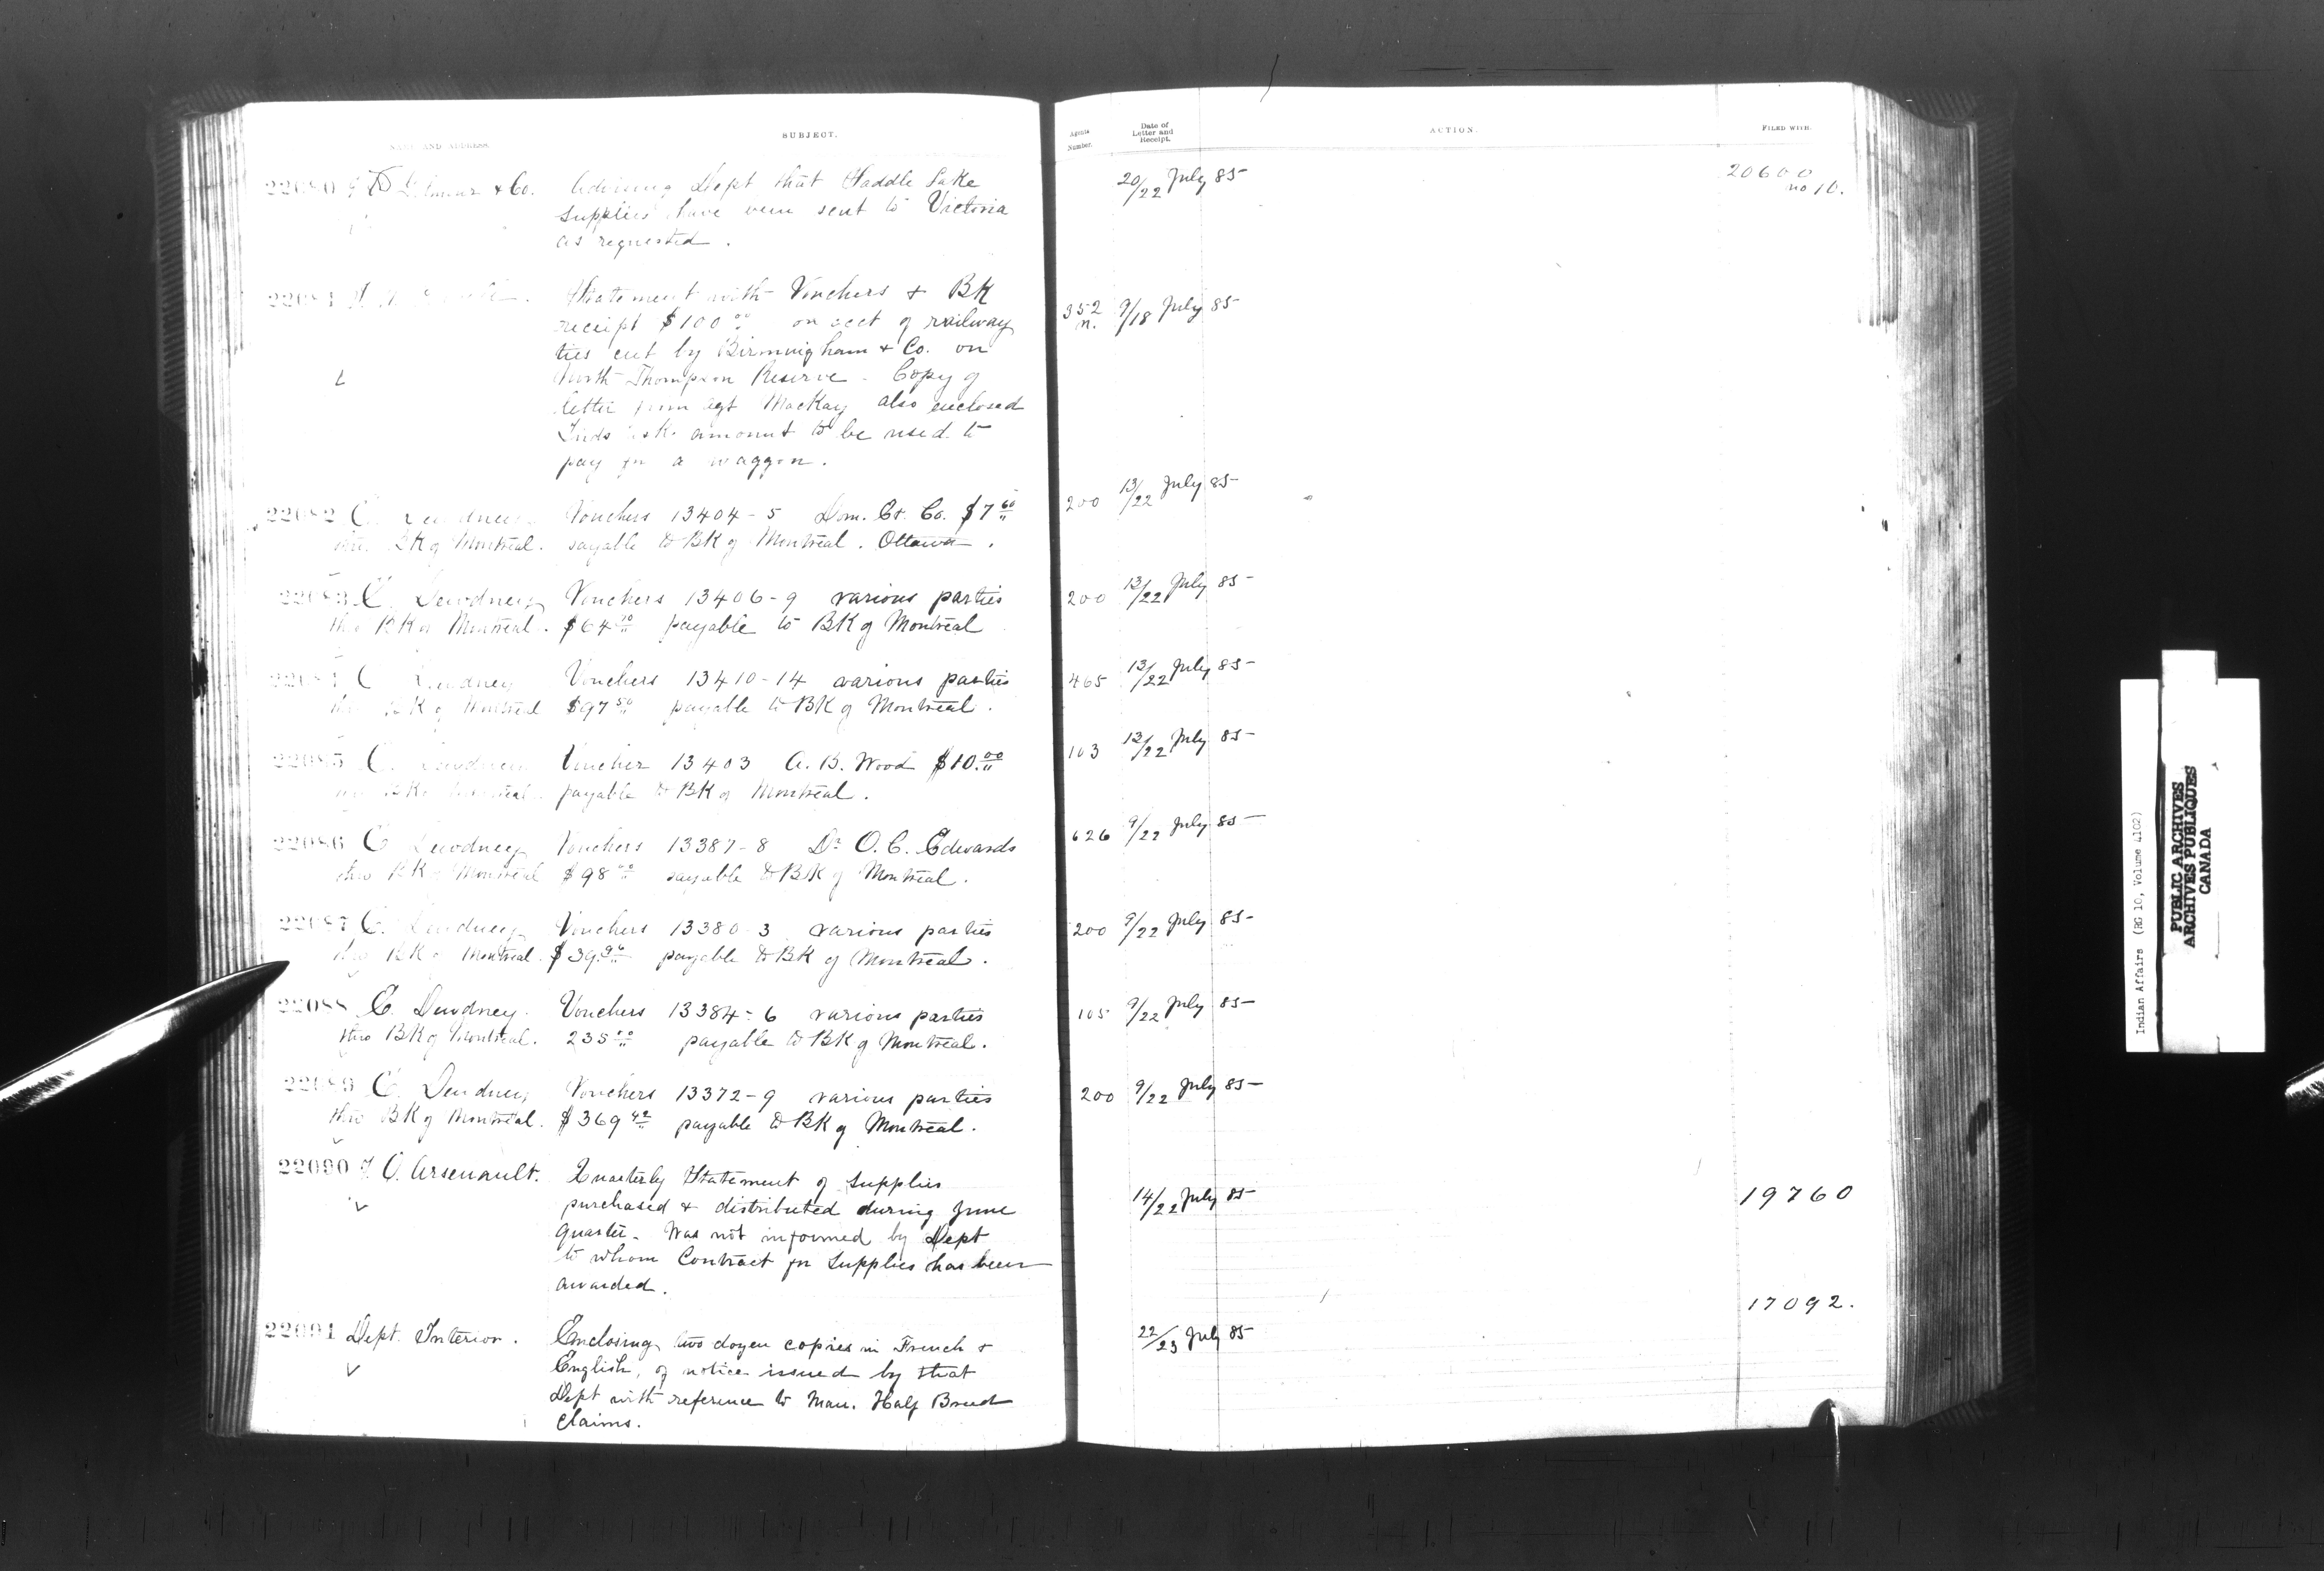 NAME AND ADDRESS.
SUBJECT.
Agents Number.
Date of Letter and Receipt.
ACTION.
FILED WITH.
22080 & Co. Advising Dept that Saddle Lake
supplies have been sent to Victoria
as requested.
20/22 July 85
20600
no 10.
22081 Statement with Vouchers & BK
receipt $100 00 on acct of railway
ties cut by Birmingham & Co. on
North Thompson Reserve - Copy of
letter from agt MacKay also enclosed
Inds ask amount to be used to
pay for a waggon.
352 n. 9/18 July 85
22082 E. Dewdney Vouchers 13404-5 Dom. Ex. Co. $7 60
thro BK of Montreal. payable to BK of Montreal. Ottawa.
200 13/22 July 85
22083 E. Dewdney Vouchers 13406-9 various parties
thro BK of Montreal. $64 payable to BK of Montreal
200 13/22 July 85
22084 E. Dewdney Vouchers 13410-14 various parties
thro BK of Montreal $97 50 payable to BK of Montreal.
465 13/22 July 85
22085 E. Dewdney Voucher 13403 A. B. Wood $10.00
thro BK of Montreal. payable to BK of Montreal.
103 13/22 July 85
22086 E. Dewdney Vouchers 13387-8 Dr O. C. Edwards
thro BK of Montreal $98 payable to BK of Montreal.
626 9/22 July 85
22087 E. Dewdney Vouchers 13380-3 various parties
thro BK of Montreal. $39. payable to BK of Montreal.
200 9/22 July 85
22088 E. Dewdney. Vouchers 13384-6 various parties
thro BK of Montreal. 235 payable to BK of Montreal.
105 9/22 July 85
22089 E. Dewdney Vouchers 13372-9 various parties
thro BK of Montreal. $369 42 payable to BK of Montreal.
200 9/22 July 85
22090 J. O. Arsenault. Quarterly Statement of supplies
purchased & distributed during June
quarter - Was not informed by Dept
to whom Contract for supplies has been
awarded.
14/22 July 85
19760
22091 Dept. Interior. Enclosing two dozen copies in French &
English, of notice issued by that
Dept with reference to Man. Half Breed
Claims.
22/23 July 85
17092.
Indian Affairs (RG 10, Volume 4102)
PUBLIC ARCHIVES
ARCHIVES PUBLIQUES
CANADA